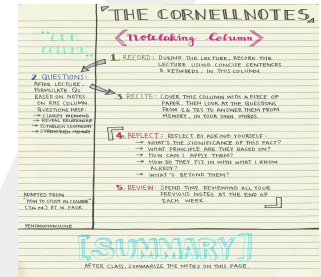 THE CORNELL NOTES
"CUE
COLUMN"
Notetaking Column
1. RECORD: DURING THE LECTURE, RECORD THE
LECTURE USING CONCISE SENTENCES
& KEYWORDS. IN THIS COLUMN.
2. QUESTIONS:
AFTER LECTURE,
FORMULATE QS
BASED ON NOTES
ON RHS COLUMN.
QUESTIONS HELP:
→ CLARIFY MEANING
→ REVEAL RELATIONSHIP
→ ESTABLISH CONTINUITY
→ STRENGTHEN MEMORY
3. RECITE: COVER THIS COLUMN WITH A PIECE OF
PAPER. THEN LOOK AT THE QUESTIONS
FROM 2 & TRY TO ANSWER THEM FROM
MEMORY. IN YOUR OWN WORDS.
4. REFLECT: REFLECT BY ASKING YOURSELF:
→ WHAT'S THE SIGNIFICANCE OF THIS FACT?
→ WHAT PRINCIPLE ARE THEY BASED ON?
→ HOW CAN I APPLY THEM?
→ HOW DO THEY FIT IN WITH WHAT I KNOW
ALREADY?
→ WHAT'S BEYOND THEM?
5. REVIEW: SPEND TIME REVIEWING ALL YOUR
PREVIOUS NOTES AT THE END OF
EACH WEEK.
ADAPTED FROM
"HOW TO STUDY IN COLLEGE"
(7th ed.) BY W. PAUK
PENSANDMACHINE
[SUMMARY]
AFTER CLASS, SUMMARIZE THE NOTES ON THIS PAGE.